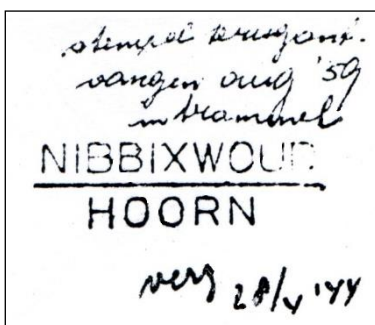 stempel terugont-
vangen aug '59
in trommel
NIBBIXWOUD
HOORN
verz 28/V '44